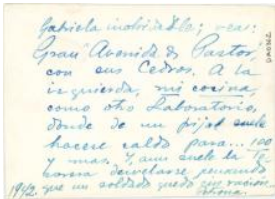 Gabriela inolvidable; vea:
Gran Avenida de Pastor
con sus Cedros. A la
izquierda, mi cocina,
como otro Laboratorio,
donde de un pijal suele
hacerse caldo para... 100
y mas. Y aun suele la Te-
desvelarse pensando
1942 que un soldado quedó sin ración